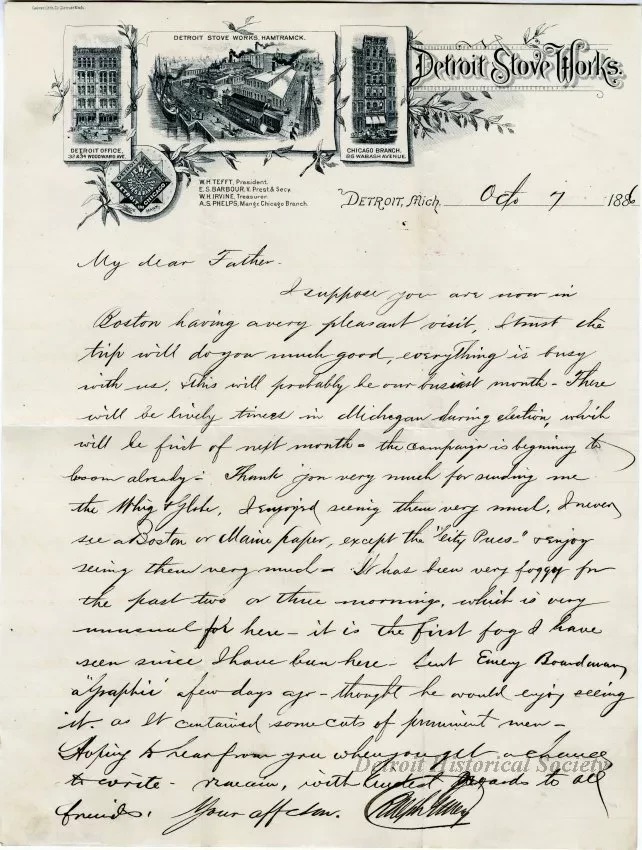 Calvert Lith. Co. Detroit Mich.
DETROIT STOVE WORKS, HAMTRAMCK.
Detroit Stove Works.
DETROIT OFFICE,
32 & 34 WOODWARD AVE.
CHICAGO BRANCH,
85 WABASH AVENUE.
W.H. TEFFT, President.
E.S. BARBOUR, V. Prest & Secy.
W.H. IRVINE, Treasurer.
A.S. PHELPS, Mang'r Chicago Branch.
Detroit, Mich. Octo 7 1886
My dear Father.
I suppose you are now in
Boston having a very pleasant visit, I trust the
trip will do you much good, everything is busy
with us, & this will probably be our busiest month - There
will be lively times in Michegan during election, which
will be first of next month - the campaign is begining to
boom already - Thank you very much for sending me
the Whig & Globe, I enjoyed seeing them very much, I never
see a Boston or Maine paper, except the "City Pices" & enjoy
seeing them very much - It has been very foggy for
the past two or three mornings, which is very
unusual for here - it is the first fog I have
seen since I have been here - Sent Emery Boardman
a "Graphic" a few days ago - thought he would enjoy seeing
it. as It contained some cuts of prominent men -
Hoping to hear from you when you get a chance
to write - remain, with kindest regards to all
friends. Your aff son. Ralph Emery
Detroit Historical Society